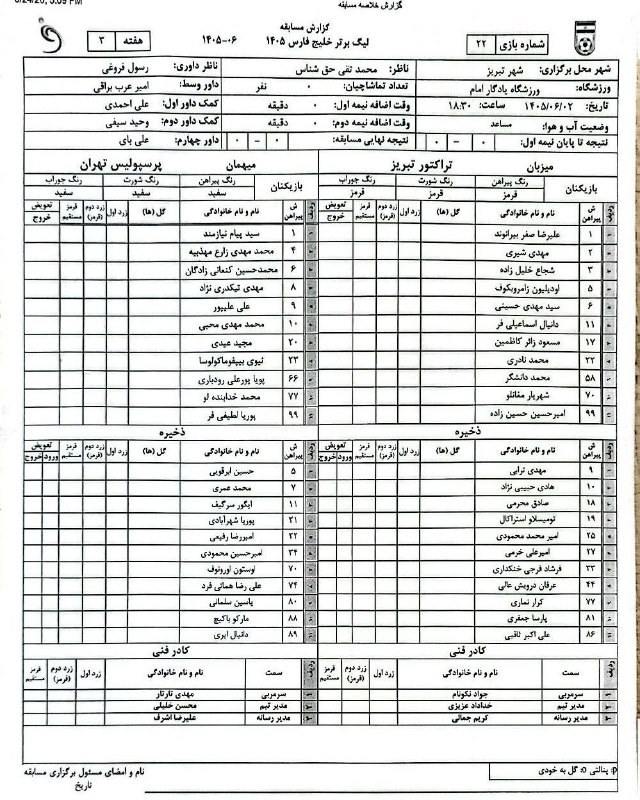 گزارش خلاصه مسابقه
گزارش مسابقه
لیگ برتر خلیج فارس ۱۴۰۵
۱۴۰۵-۰۶
هفته ۳
شماره بازی ۲۲
شهر محل برگزاری: شهر تبریز
ناظر: محمد تقی حق شناس
ناظر داوری: رسول فروغی
ورزشگاه: ورزشگاه یادگار امام
تعداد تماشاچیان: ۰ نفر
داور وسط: امیر عرب براقی
تاریخ: ۱۴۰۵/۰۶/۰۲ ساعت: ۱۸:۳۰
وقت اضافه نیمه اول: ۰ دقیقه
کمک داور اول: علی احمدی
وضعیت آب و هوا: مساعد
وقت اضافه نیمه دوم: ۰ دقیقه
کمک داور دوم: وحید سیفی
نتیجه تا پایان نیمه اول: ۰ - ۰
نتیجه نهایی مسابقه: ۰ - ۰
داور چهارم: علی بای
میزبان تراکتور تبریز
بازیکنان رنگ پیراهن رنگ شورت رنگ جوراب
قرمز قرمز قرمز
ردیف ش پیراهن نام و نام خانوادگی گل (ها) زرد اول زرد دوم (قرمز) قرمز مستقیم تعویض خروج
۱ علیرضا صفر بیرانوند
۲ مهدی شیری
۳ شجاع خلیل زاده
۵ اودیلیون زامروبکوف
۶ سید مهدی حسینی
۱۱ دانیال اسماعیلی فر
۱۷ مسعود زائر کاظمین
۲۲ محمد نادری
۵۸ محمد دانشگر
۷۰ شهریار مغانلو
۹۹ امیرحسین حسین زاده
ذخیره
ردیف ش پیراهن نام و نام خانوادگی گل (ها) زرد اول زرد دوم (قرمز) قرمز مستقیم تعویض ورود خروج
۹ مهدی ترابی
۱۰ هادی حبیبی نژاد
۱۸ صادق محرمی
۱۹ تومیسلاو استراکال
۲۵ امیر محمد محمودی
۲۷ امیرعلی خرمی
۳۳ فرشاد فرجی خنکداری
۴۴ عرفان درویش عالی
۷۷ کرار نماری
۸۱ پارسا جعفری
۸۶ علی اکبر ثاقبی
کادر فنی
ردیف سمت نام و نام خانوادگی زرد اول زرد دوم (قرمز) قرمز مستقیم
۱ سرمربی جواد نکونام
۲ مدیر تیم خداداد عزیزی
۳ مدیر رسانه کریم جمالی
میهمان پرسپولیس تهران
بازیکنان رنگ پیراهن رنگ شورت رنگ جوراب
سفید سفید سفید
ردیف ش پیراهن نام و نام خانوادگی گل (ها) زرد اول زرد دوم (قرمز) قرمز مستقیم تعویض خروج
۱ سید پیام نیازمند
۴ محمد مهدی زارع مهذبیه
۶ محمدحسین کنعانی زادگان
۸ مهدی تیکدری نژاد
۹ علی علیپور
۱۰ محمد مهدی محبی
۲۰ مجید عیدی
۲۳ تیوی بیفوماکولوسا
۶۶ پویا پورعلی رودباری
۷۷ محمد خدابنده لو
۹۹ پوریا لطیفی فر
ذخیره
ردیف ش پیراهن نام و نام خانوادگی گل (ها) زرد اول زرد دوم (قرمز) قرمز مستقیم تعویض ورود خروج
۵ حسین ابرقویی
۷ محمد عمری
۱۱ ایگور سرگیف
۲۱ پوریا شهرآبادی
۲۲ امیررضا رفیعی
۳۴ امیرحسین محمودی
۷۰ اوستون اورونوف
۷۴ علی رضا همائی فرد
۸۰ یاسین سلمانی
۸۸ مارکو باکیچ
۸۹ دانیال ایری
کادر فنی
ردیف سمت نام و نام خانوادگی زرد اول زرد دوم (قرمز) قرمز مستقیم
۱ سرمربی مهدی تارتار
۲ مدیر تیم محسن خلیلی
۳ مدیر رسانه علیرضا اشرف
p: پنالتی o: گل به خودی
نام و امضای مسئول برگزاری مسابقه
تاریخ